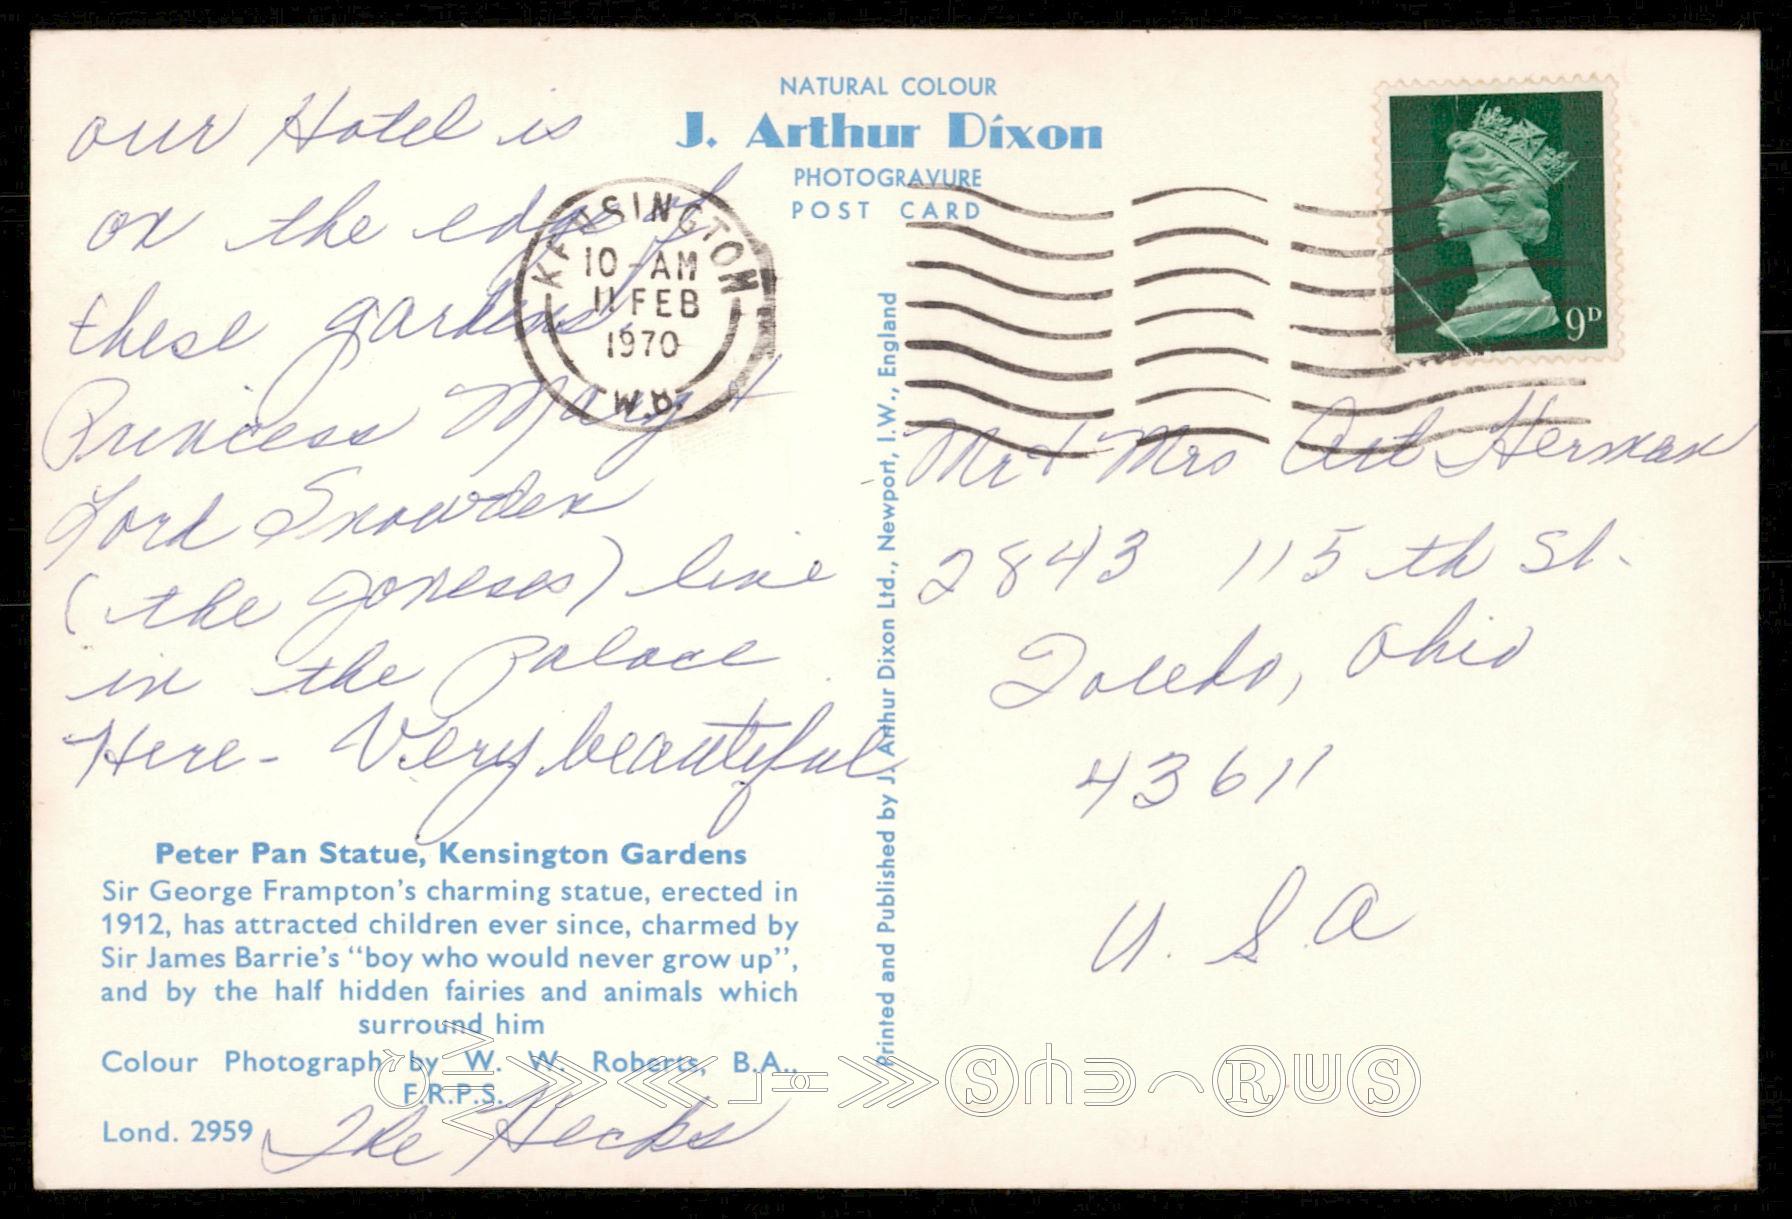 our Hotel is
on the edge of
these gardens.
Princess Marg +
Lord Snowden
(the Joneses) live
in the Palace
Here - Very beautiful
Peter Pan Statue, Kensington Gardens
Sir George Frampton's charming statue, erected in
1912, has attracted children ever since, charmed by
Sir James Barrie's "boy who would never grow up",
and by the half hidden fairies and animals which
surround him
Colour Photograph by W. W. Roberts, B.A.,
F.R.P.S.
Lond. 2959
The Hecks
NATURAL COLOUR
J. Arthur Dixon
PHOTOGRAVURE
POST CARD
KENSINGTON
10-AM
11 FEB
1970
W.8.
Printed and Published by J. Arthur Dixon Ltd., Newport, I.W., England
9D
Mr + Mrs Art Herman
2843 115th St.
Toledo, Ohio
43611
U.S.A